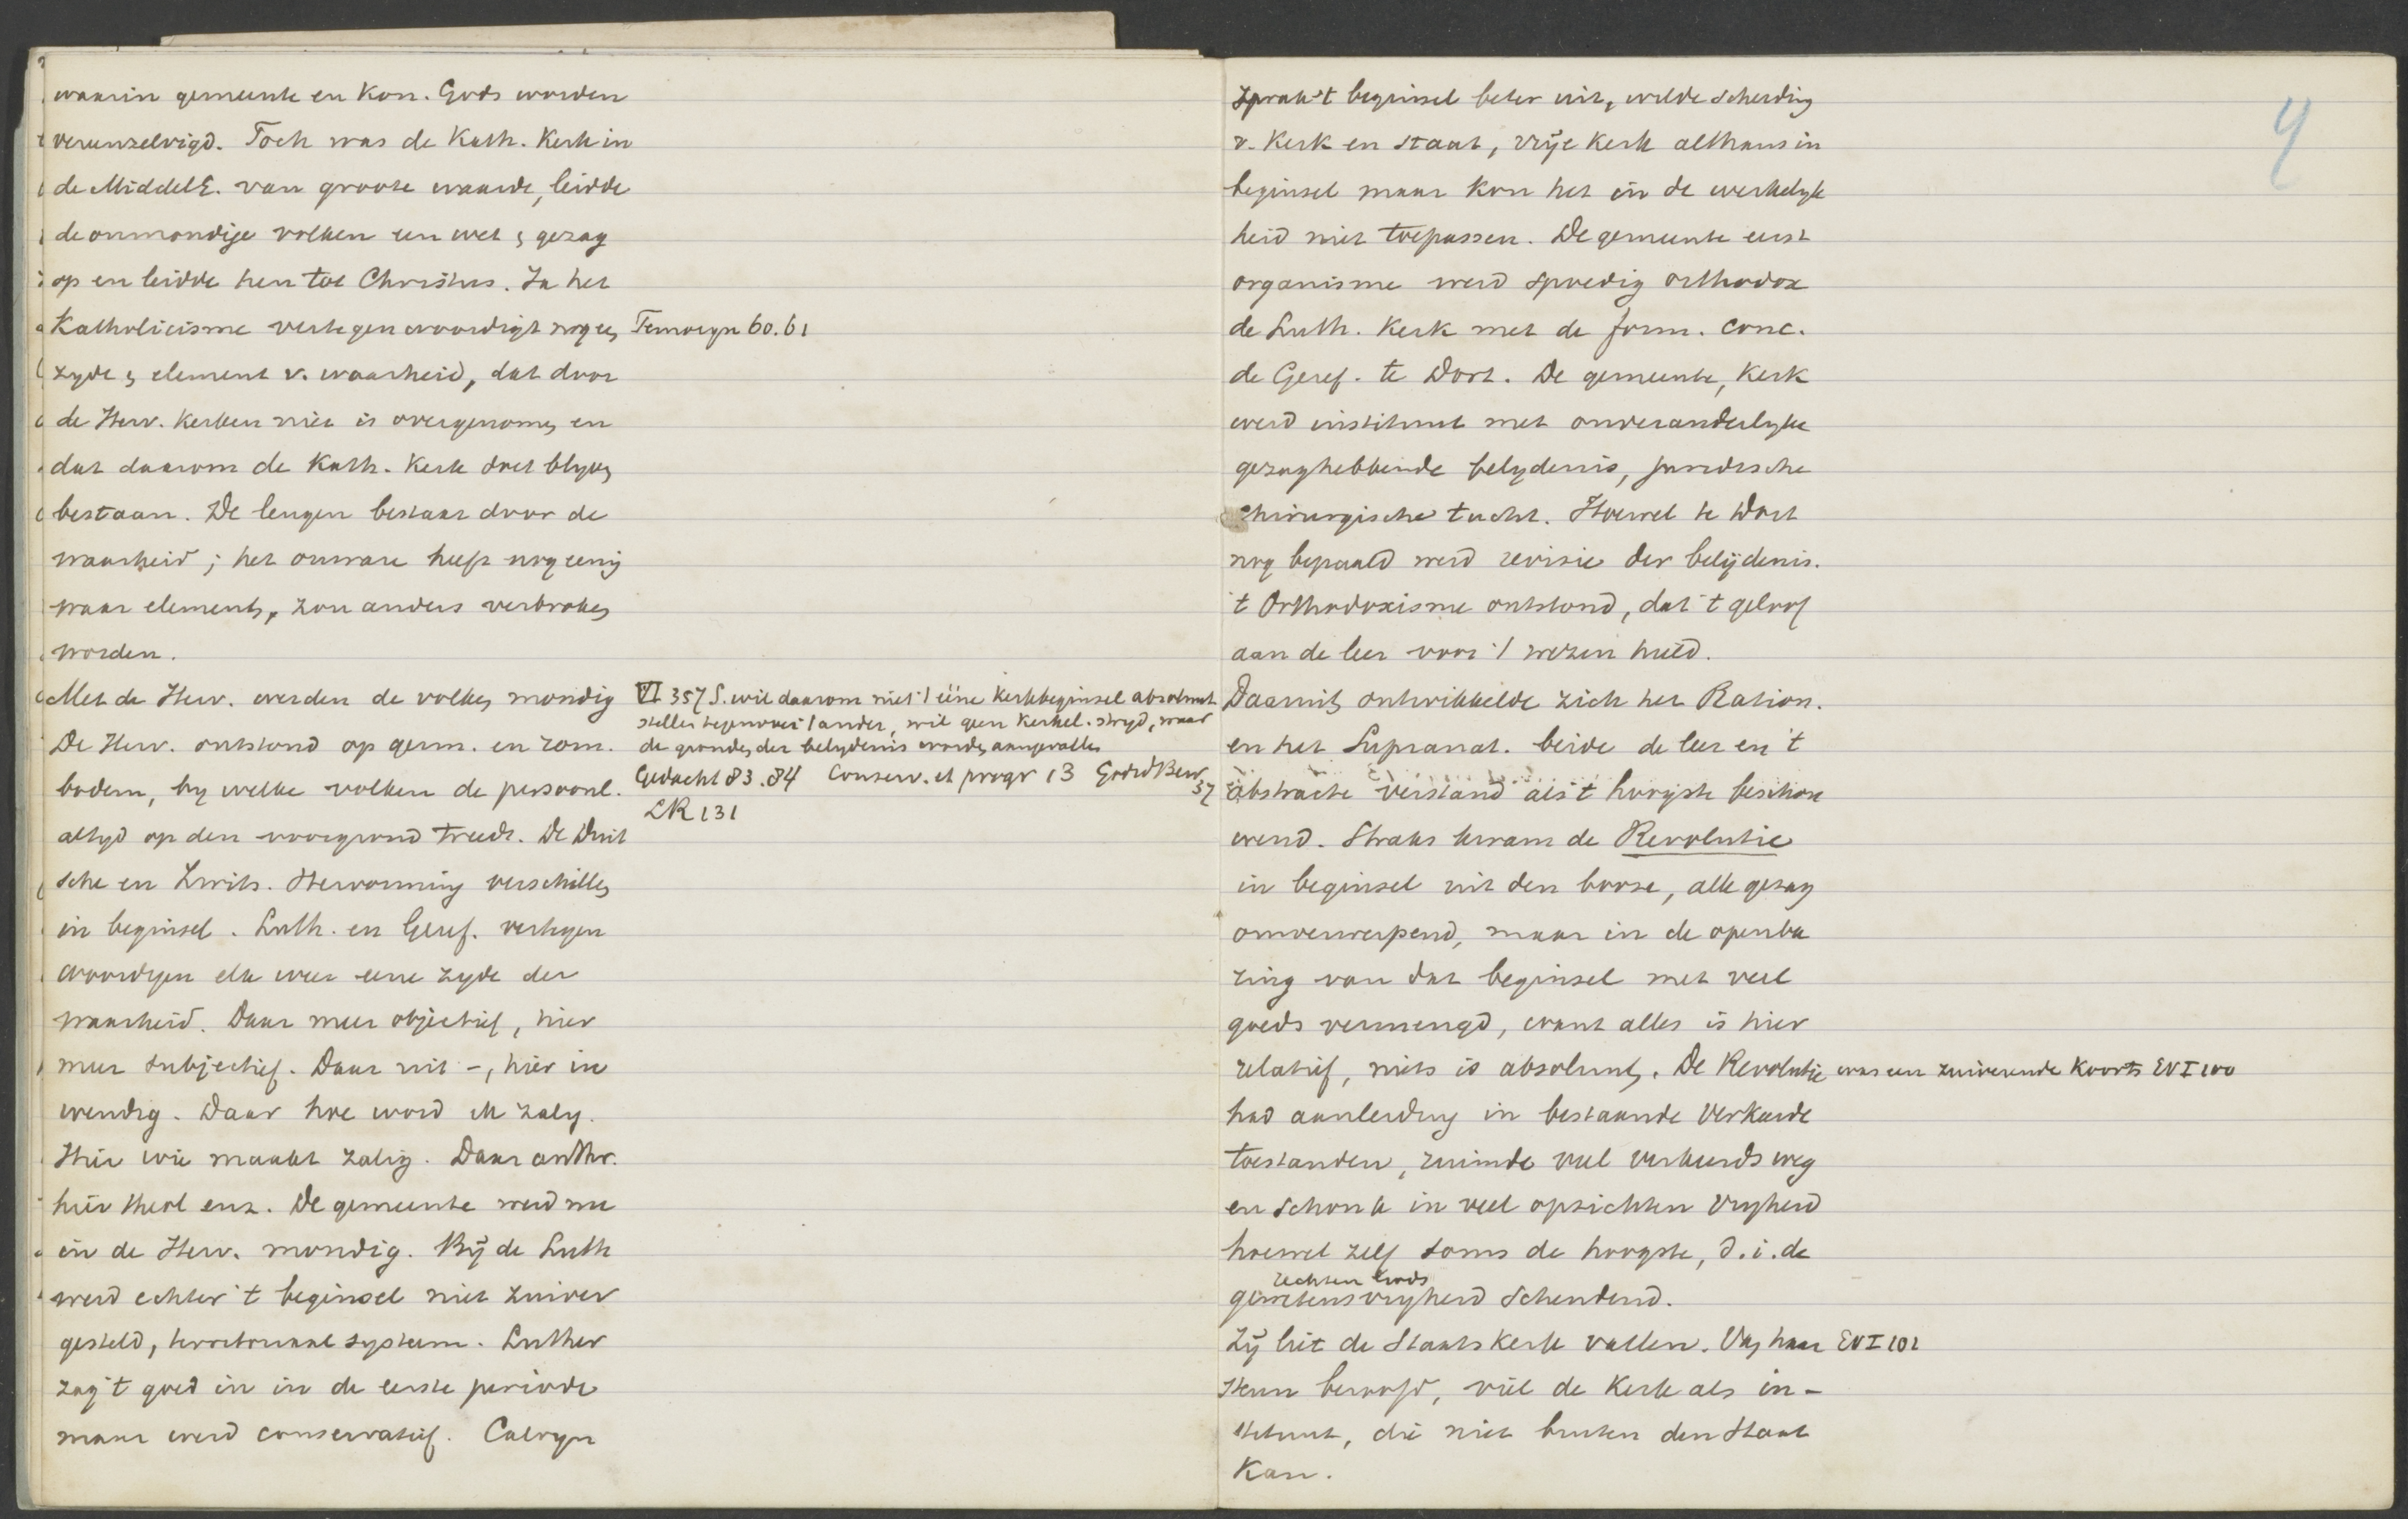 waarin gemeente en Kon. Gods worden
vereenzelvigd. Toch was de Kath. Kerk in
de MiddelE. van groote waarde, leidde
de onmondige volken een wet & gezag
op en leidde hen tot Christus. In het
Katholicisme vertegenwoordigt nog een
zyde & element v. waarheid, dat door
de Herv. Kerken niet is overgenomen en
dat daarom de Kath. Kerk doet blyven
bestaan. De leugen bestaat door de
waarheid; het onware heeft nog eenig
waar element, zou anders verbroken
worden.
Met de Herv. werden de volken mondig
De Herv. ontstond op germ. en rom.
bodem, by welke volken de persoonl.
altyd op den voorgrond treedt. De Duit
sche en Zwits. Hervorming verschillen
in beginsel. Luth. en Geref. vertegen
woordigen elk weer eene zyde der
waarheid. Daar meer objectief, hier
meer subjectief. Daar uit -, hier in
wendig. Daar hoe word ik zalig.
Hier wie maakt zalig. Daar anthr.
hier theol enz. De gemeente werd nu
in de Herv. mondig. Bij de Luth
werd echter 't beginsel niet zuiver
gesteld, territoriaal systeem. Luther
zag 't goed in in de eerste periode
maar werd conservatief. Calvyn
60.61
VI 357 S. wil daarom niet 't eene kerkbeginsel absoluut
stellen tegenover 't ander, wil geen kerkel. stryd, waar
de gronden der belydenis worden aangevallen
Gedacht 83.84 Conserv. et progr 13
37
LR 131
4
sprak 't beginsel beter uit, wilde scheiding
v. Kerk en Staat, vrije Kerk althans in
beginsel maar kon het in de werkelyk
heid niet toepassen. De gemeente eerst
organisme werd spoedig orthodox
de Luth. Kerk met de form. conc.
de Geref. te Dort. De gemeente, Kerk
werd instituut met onveranderlyke
gezaghebbende belydenis, juridische
chirurgische tucht. Hoewel te Dort
nog bepaald werd revisie der belijdenis.
't Orthodoxisme ontstond, dat 't geloof
aan de leer voor 't wezen hield.
Daaruit ontwikkelde zich het Ration.
en het Supranat. beide de leer en 't
abstracte verstand als 't hoogste beschou
wend. Straks kwam de Revolutie
in beginsel uit den booze, alle gezag
omverwerpend, maar in de openba
ring van dat beginsel met veel
goeds vermengd, want alles is hier
relatief, niets is absoluut. De Revolutie was een zuiverende koorts EVI 100
had aanleiding in bestaande verkeerde
toestanden, ruimde veel verkeerds weg
en schonk in veel opzichten vryheid
hoewel zelf soms de hoogste, d.i. de
rechten Gods
gewetensvryheid schendend.
Zij liet de Staatskerk vallen. Van haar EVI 101
steun beroofd, viel de Kerk als in-
stituut, die niet buiten den Staat
kan.